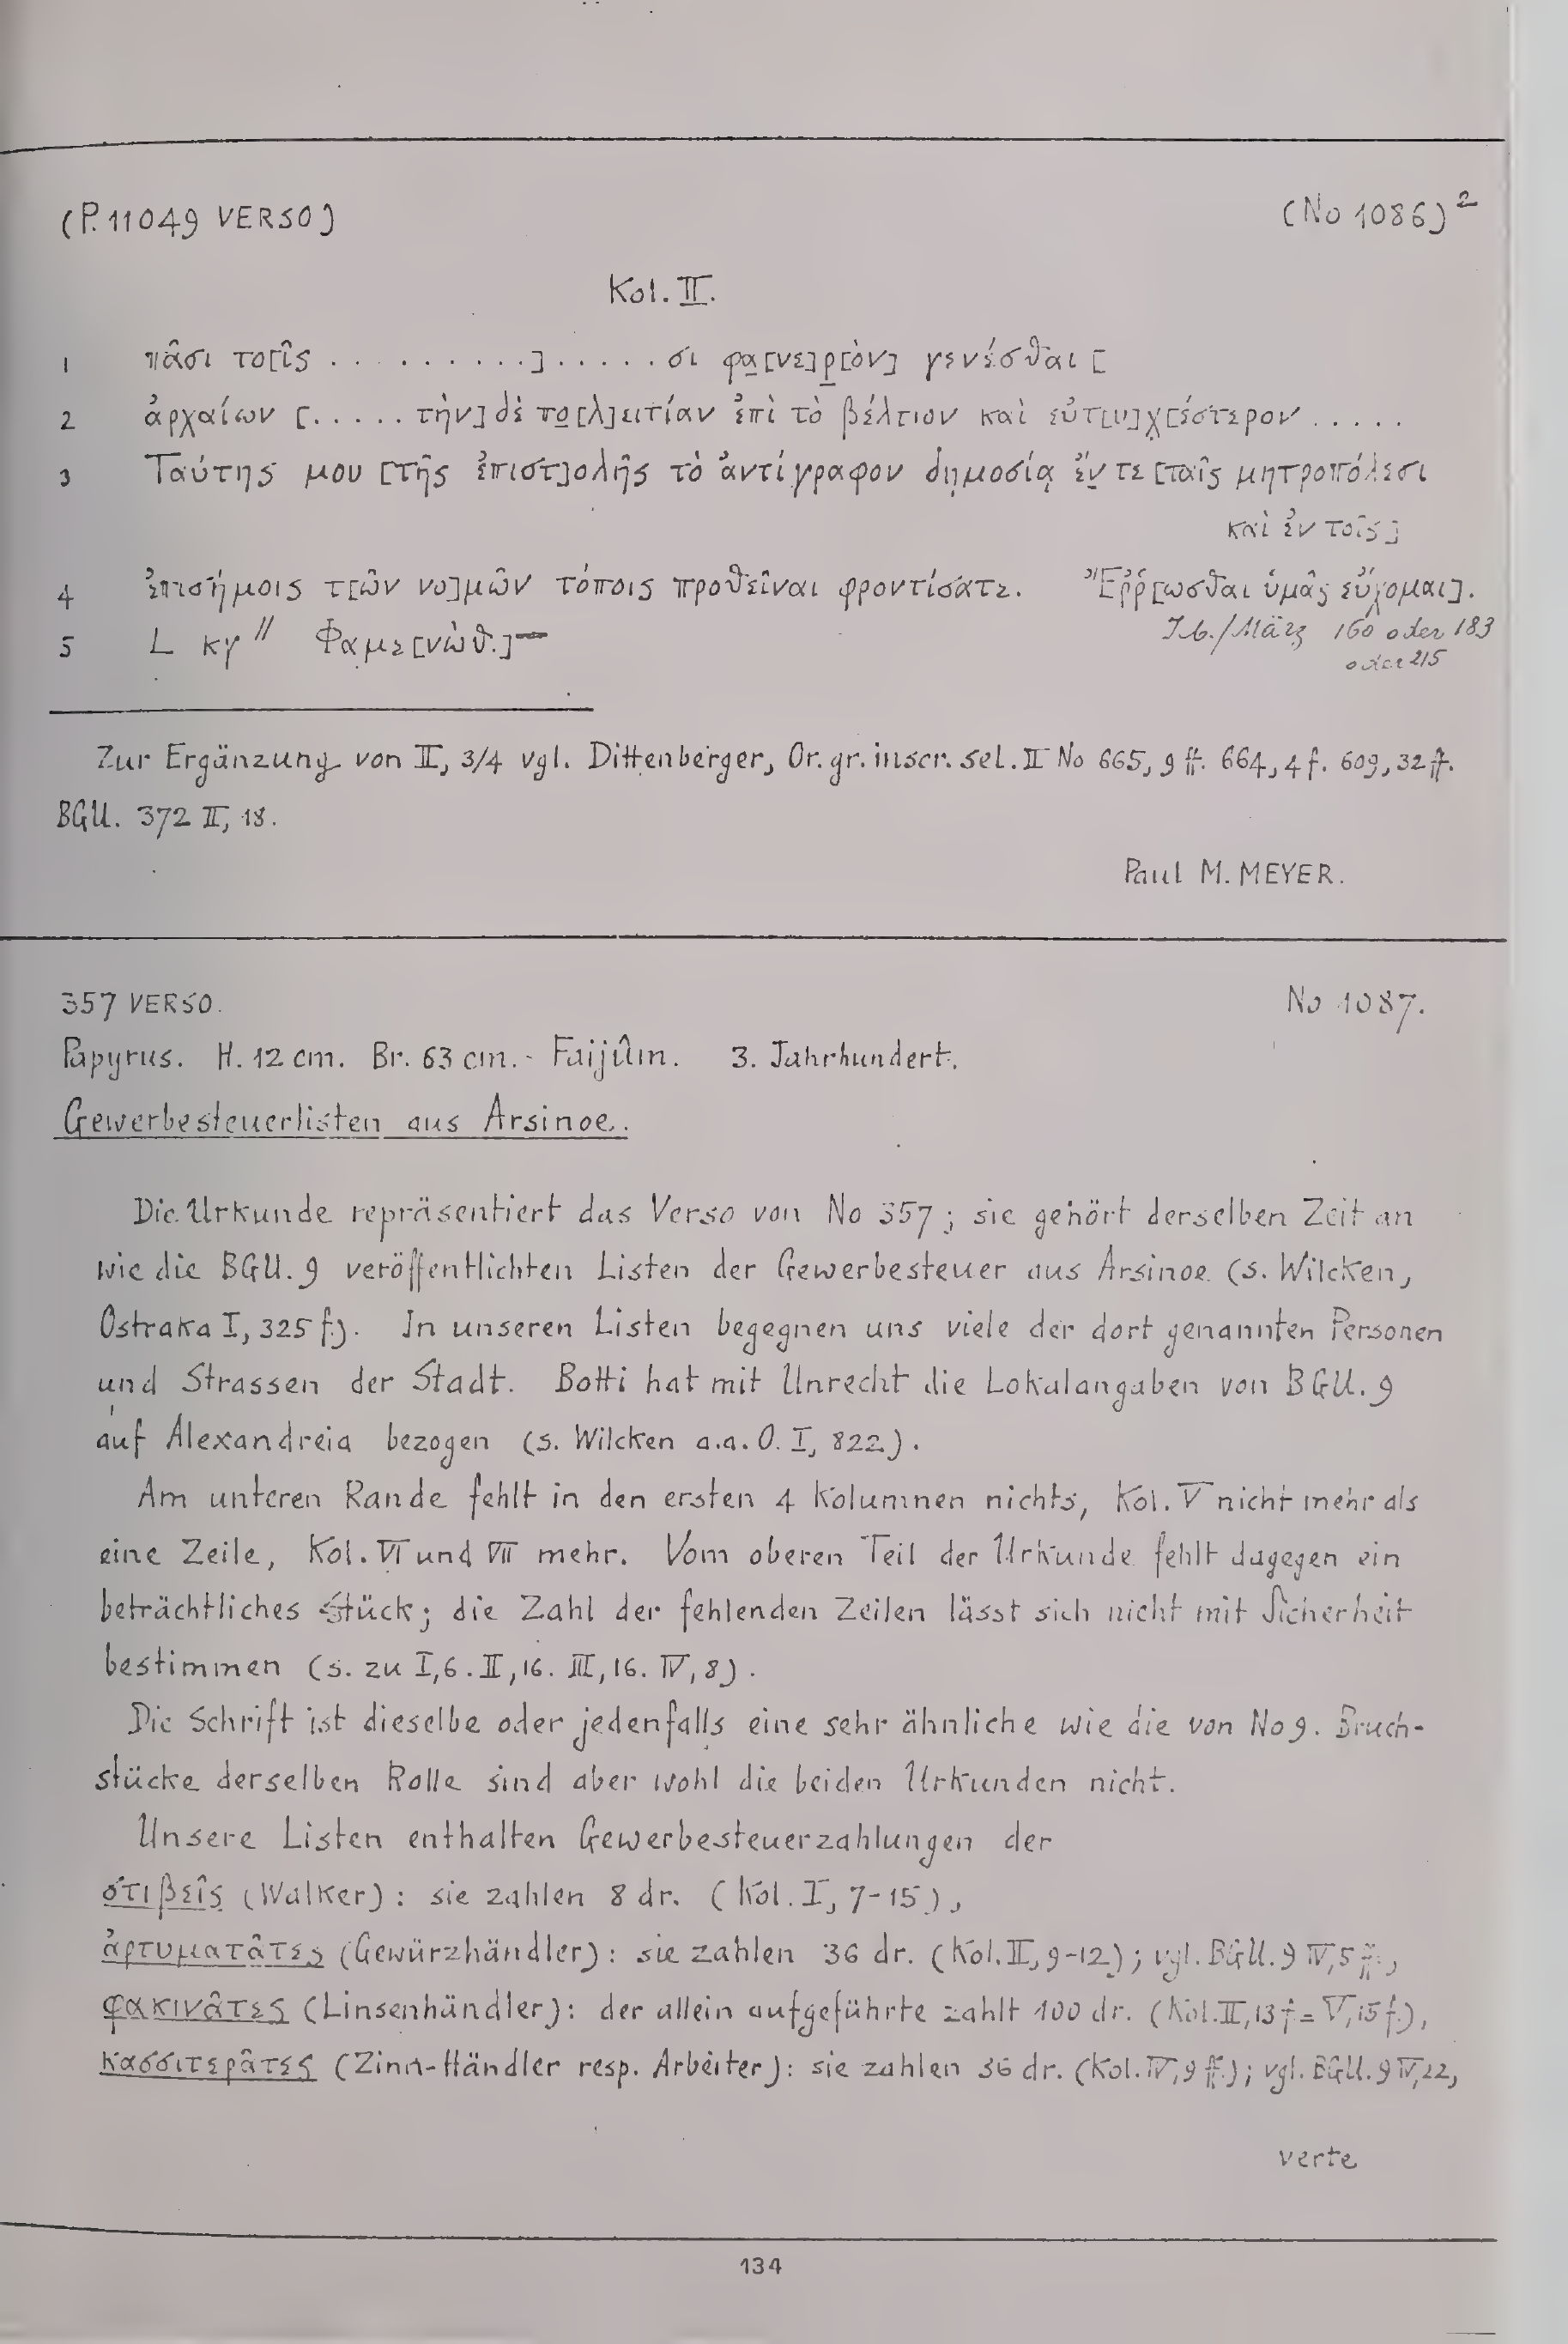 (P. 11049 VERSO) (No 1086)²
Kol. II.
1 πᾶσι το[ῖς . . . . . . . . . .] . . . . . σι φα[νε]ρ[ὸν] γενέσθαι [
2 ἀρχαίων [. . . . . τὴν] δὲ πο[λ]ειτίαν ἐπὶ τὸ βέλτιον καὶ εὐτ[υ]χ[έστερον . . . . .
3 Ταύτης μου [τῆς ἐπιστ]ολῆς τὸ ἀντίγραφον δημοσίᾳ ἔν τε [ταῖς μητροπόλεσι
καὶ ἐν τοῖς]
4 ἐπισήμοις τ[ῶν νο]μῶν τόποις προθεῖναι φροντίσατε. Ἔρρ[ωσθαι ὑμᾶς εὔχομαι].
5 L κγ〃 Φαμε[νὼθ.]— Feb./März 160 oder 183
oder 215
Zur Ergänzung von II, 3/4 vgl. Dittenberger, Or. gr. inscr. sel. II No 665, 9 ff. 664, 4 f. 609, 32 ff.
BGU. 372 II, 18.
Paul M. MEYER.
357 VERSO. No 1087.
Papyrus. H. 12 cm. Br. 63 cm. - Faijûm. 3. Jahrhundert.
Gewerbesteuerlisten aus Arsinoe.
Die Urkunde repräsentiert das Verso von No 357; sie gehört derselben Zeit an
wie die BGU. 9 veröffentlichten Listen der Gewerbesteuer aus Arsinoe (s. Wilcken,
Ostraka I, 325 f.). In unseren Listen begegnen uns viele der dort genannten Personen
und Strassen der Stadt. Botti hat mit Unrecht die Lokalangaben von BGU. 9
auf Alexandreia bezogen (s. Wilcken a.a. O. I, 822).
Am unteren Rande fehlt in den ersten 4 Kolumnen nichts, Kol. V nicht mehr als
eine Zeile, Kol. VI und VII mehr. Vom oberen Teil der Urkunde fehlt dagegen ein
beträchtliches Stück; die Zahl der fehlenden Zeilen lässt sich nicht mit Sicherheit
bestimmen (s. zu I, 6. II, 16. III, 16. IV, 8).
Die Schrift ist dieselbe oder jedenfalls eine sehr ähnliche wie die von No 9. Bruch-
stücke derselben Rolle sind aber wohl die beiden Urkunden nicht.
Unsere Listen enthalten Gewerbesteuerzahlungen der
στιβεῖς (Walker): sie zahlen 8 dr. (Kol. I, 7-15),
ἀρτυματᾶτες (Gewürzhändler): sie zahlen 36 dr. (Kol. II, 9-12); vgl. BGU. 9 IV, 5 ff.,
φακινᾶτες (Linsenhändler): der allein aufgeführte zahlt 100 dr. (Kol. II, 13 f = V, 15 f.),
κασσιτερᾶτες (Zinn-Händler resp. Arbeiter): sie zahlen 36 dr. (Kol. IV, 9 ff.); vgl. BGU. 9 IV, 22,
verte
134